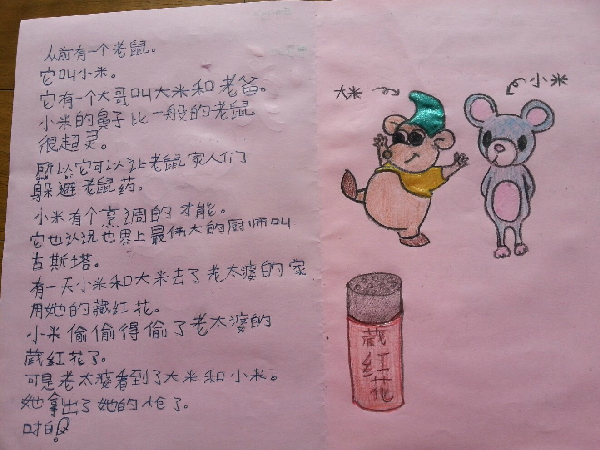 从前有一个老鼠。
它叫小米。
它有一个大哥叫大米和老爸。
小米的鼻子比一般的老鼠
很超灵。
所以它可以让老鼠家人们
躲避老鼠药。
小米有个烹调的才能。
它也认识世界上最伟大的厨师叫
古斯塔。
有一天小米和大米去了老太婆的家
用她的藏红花。
小米偷偷得偷了老太婆的
藏红花了。
可是老太婆看到了大米和小米。
她拿出了她的枪了。
啪
大米
小米
藏红花